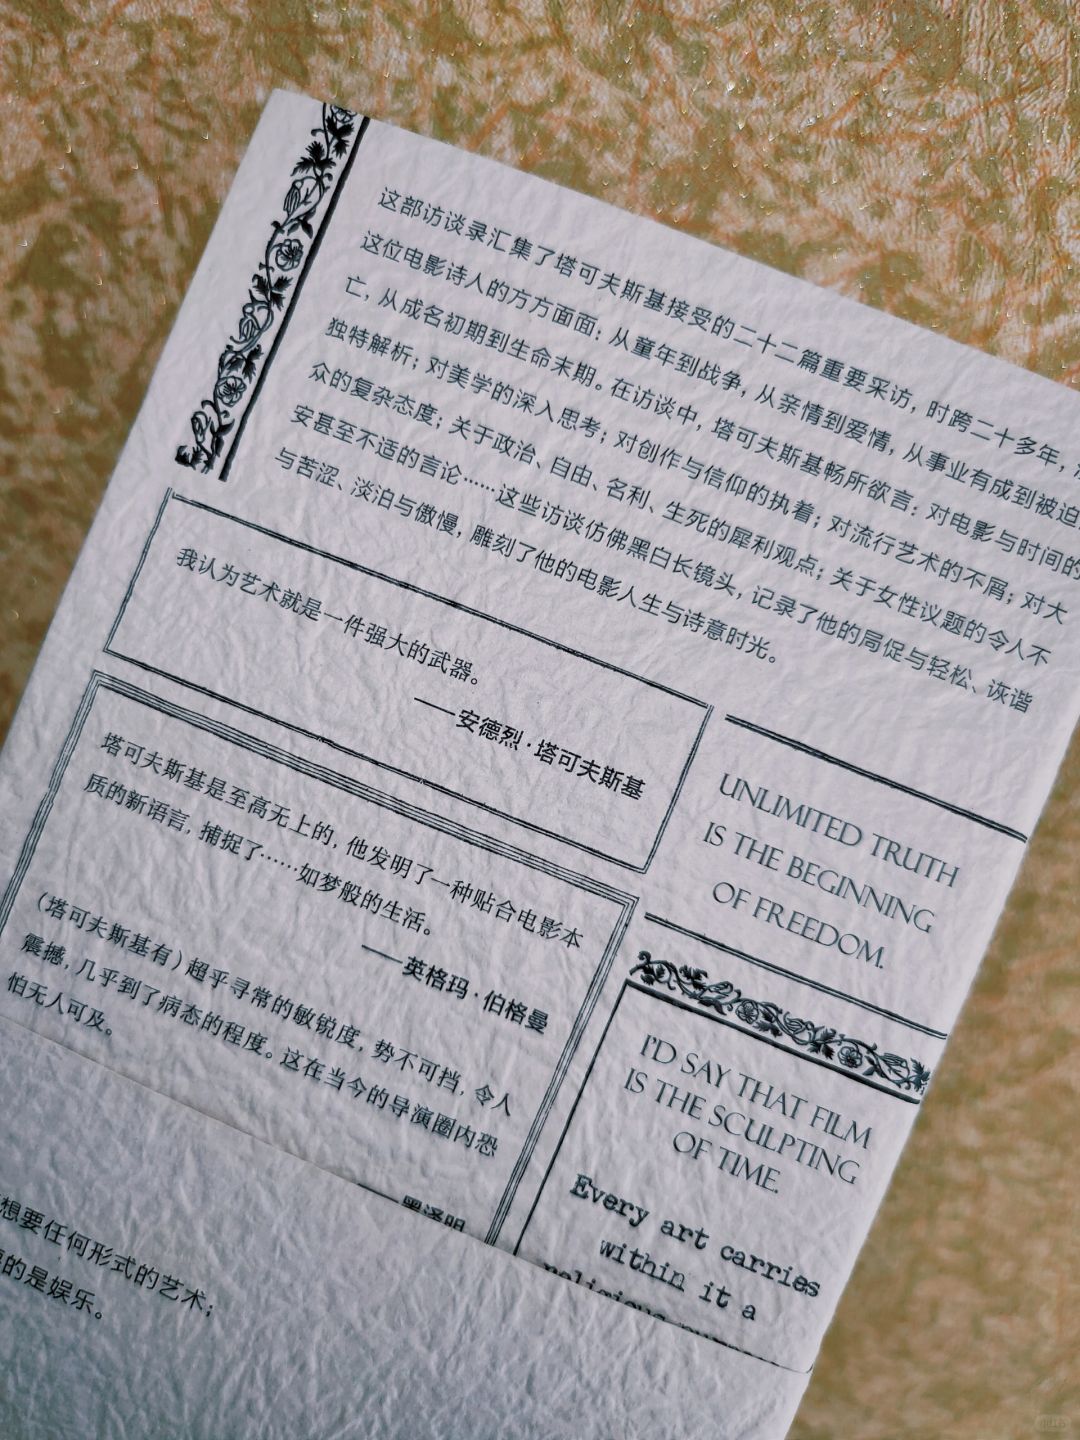 这部访谈录汇集了塔可夫斯基接受的二十二篇重要采访，时跨二十多年，
这位电影诗人的方方面面：从童年到战争，从亲情到爱情，从事业有成到被迫
亡，从成名初期到生命末期。在访谈中，塔可夫斯基畅所欲言：对电影与时间的
独特解析；对美学的深入思考；对创作与信仰的执着；对流行艺术的不屑；对大
众的复杂态度；关于政治、自由、名利、生死的犀利观点；关于女性议题的令人不
安甚至不适的言论……这些访谈仿佛黑白长镜头，记录了他的局促与轻松、诙谐
与苦涩、淡泊与傲慢，雕刻了他的电影人生与诗意时光。
我认为艺术就是一件强大的武器。
——安德烈·塔可夫斯基
塔可夫斯基是至高无上的，他发明了一种贴合电影本
质的新语言，捕捉了……如梦般的生活。
——英格玛·伯格曼
（塔可夫斯基有）超乎寻常的敏锐度，势不可挡，令人
震撼，几乎到了病态的程度。这在当今的导演圈内恐
怕无人可及。
——黑泽明
UNLIMITED TRUTH
IS THE BEGINNING
OF FREEDOM.
I'D SAY THAT FILM
IS THE SCULPTING
OF TIME.
Every art carries
within it a
religious
想要任何形式的艺术；
的是娱乐。